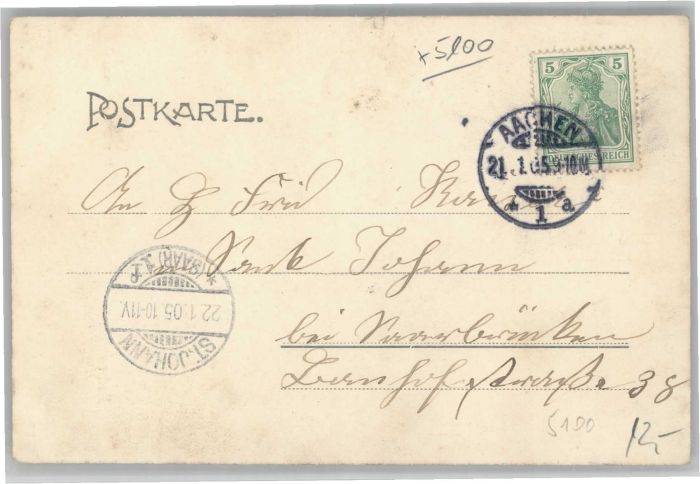 +5100
5 5
DEUTSCHES REICH
POSTKARTE.
AACHEN
21.1.05.9-10V.
* 1 a
An H Fried
in Sankt Johann
bei Saarbrücken
Banhofstraße 38
* (SAAR) 1 f
22.1.05.10-11V.
ST. JOHANN
5100
12,-